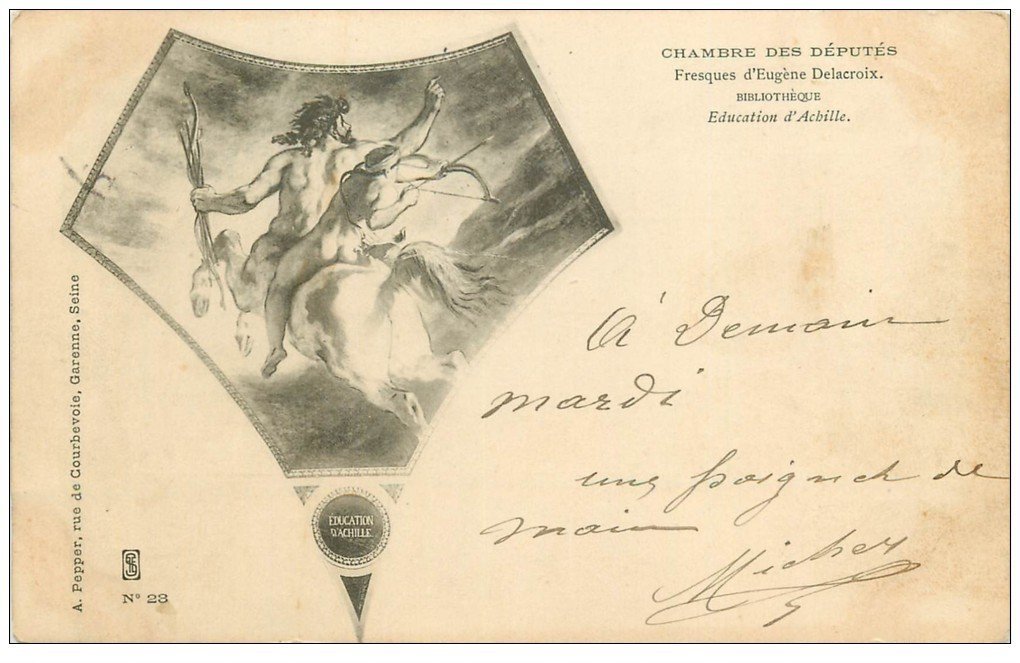 CHAMBRE DES DÉPUTÉS
Fresques d'Eugène Delacroix.
BIBLIOTHÈQUE
Education d'Achille.
A. Pepper, rue de Courbevoie, Garenne, Seine
EDUCATION
D'ACHILLE.
Nº 23
À Demain
mardi
une poigneh de
main